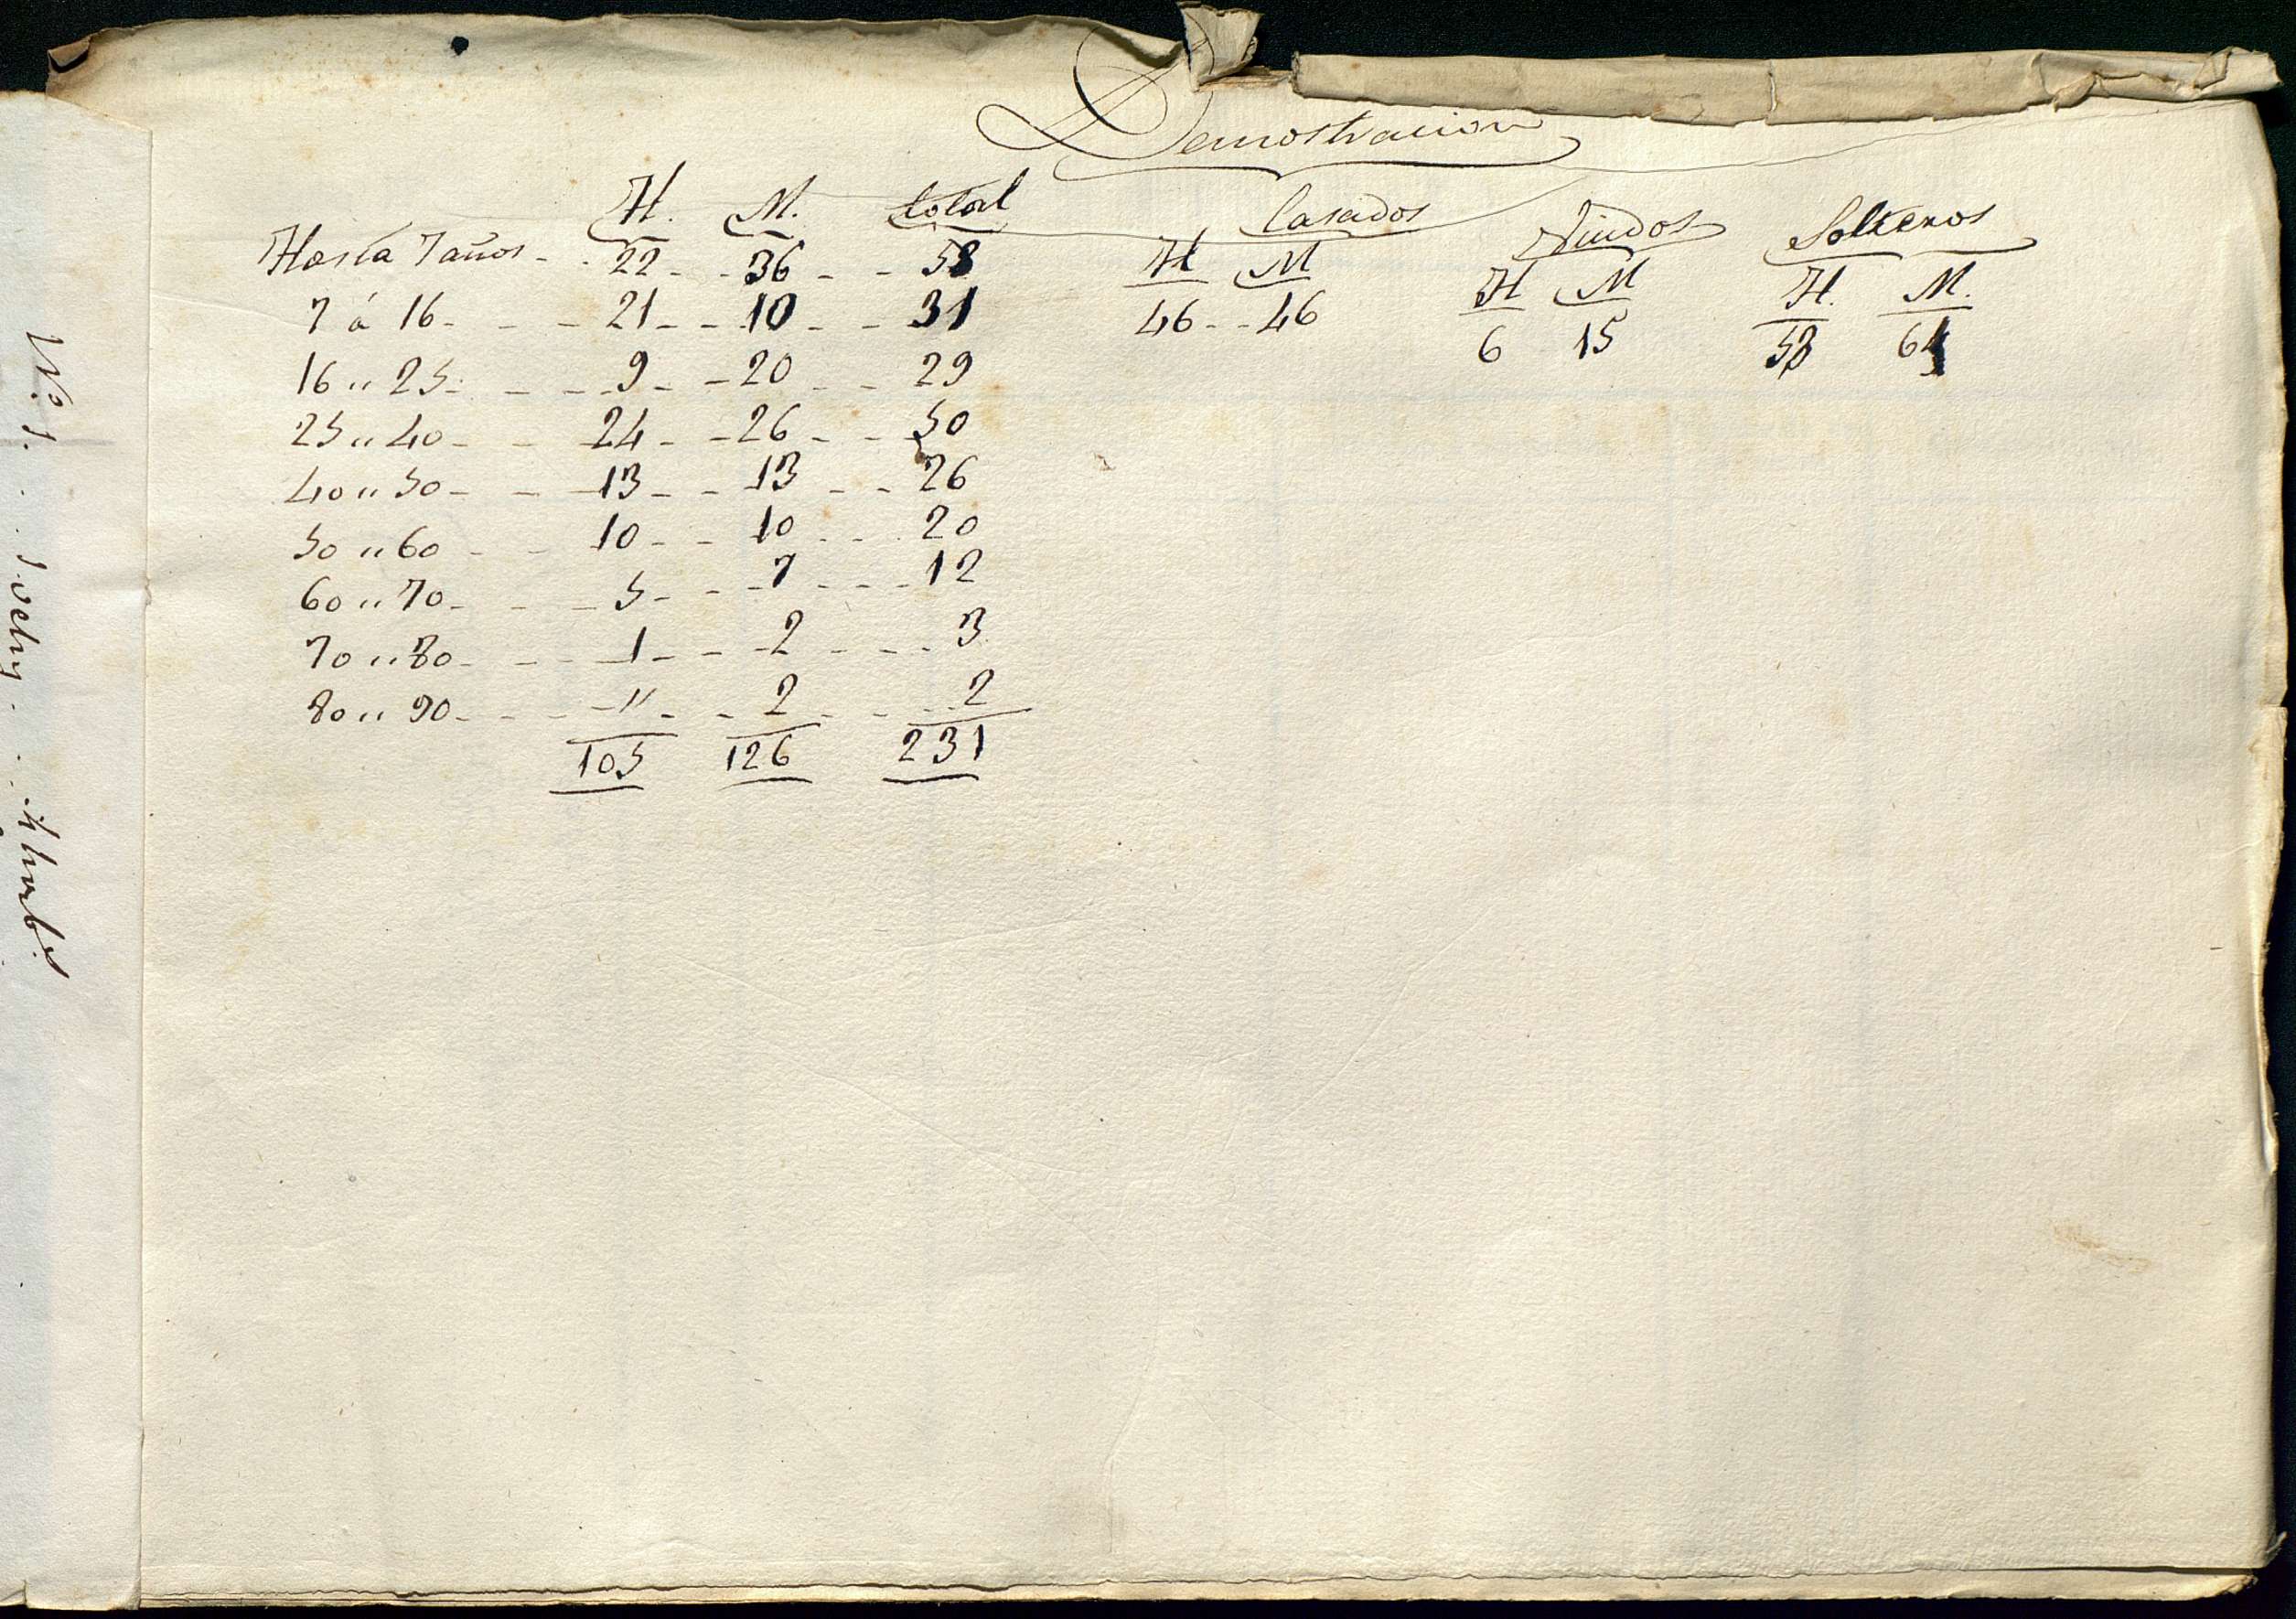 Demostracion
H. M. total
Hasta 7 años - - 22 - - 36 - - 58
7 á 16 - - - 21 - - 10 - - 31
16 " 25 - - - 9 - - 20 - - 29
25 " 40 - - 24 - - 26 - - 50
40 " 50 - - 13 - - 13 - - 26
50 " 60 - - 10 - - 10 - - 20
60 " 70 - - 5 - - 7 - - 12
70 " 80 - - 1 - - 2 - - 3
80 " 90 - - " - - 2 - - 2
105 126 231
Casados
H M
46 - - 46
Viudos
H M
6 15
Solteros
H. M.
53 65
N.º 1.